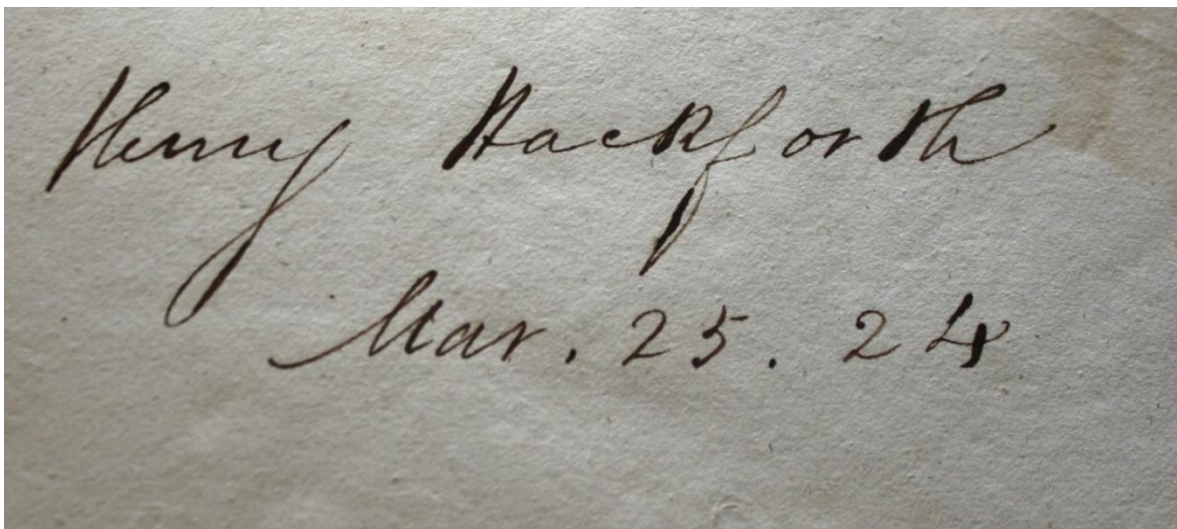 Henry Hackforth
Mar. 25. 24